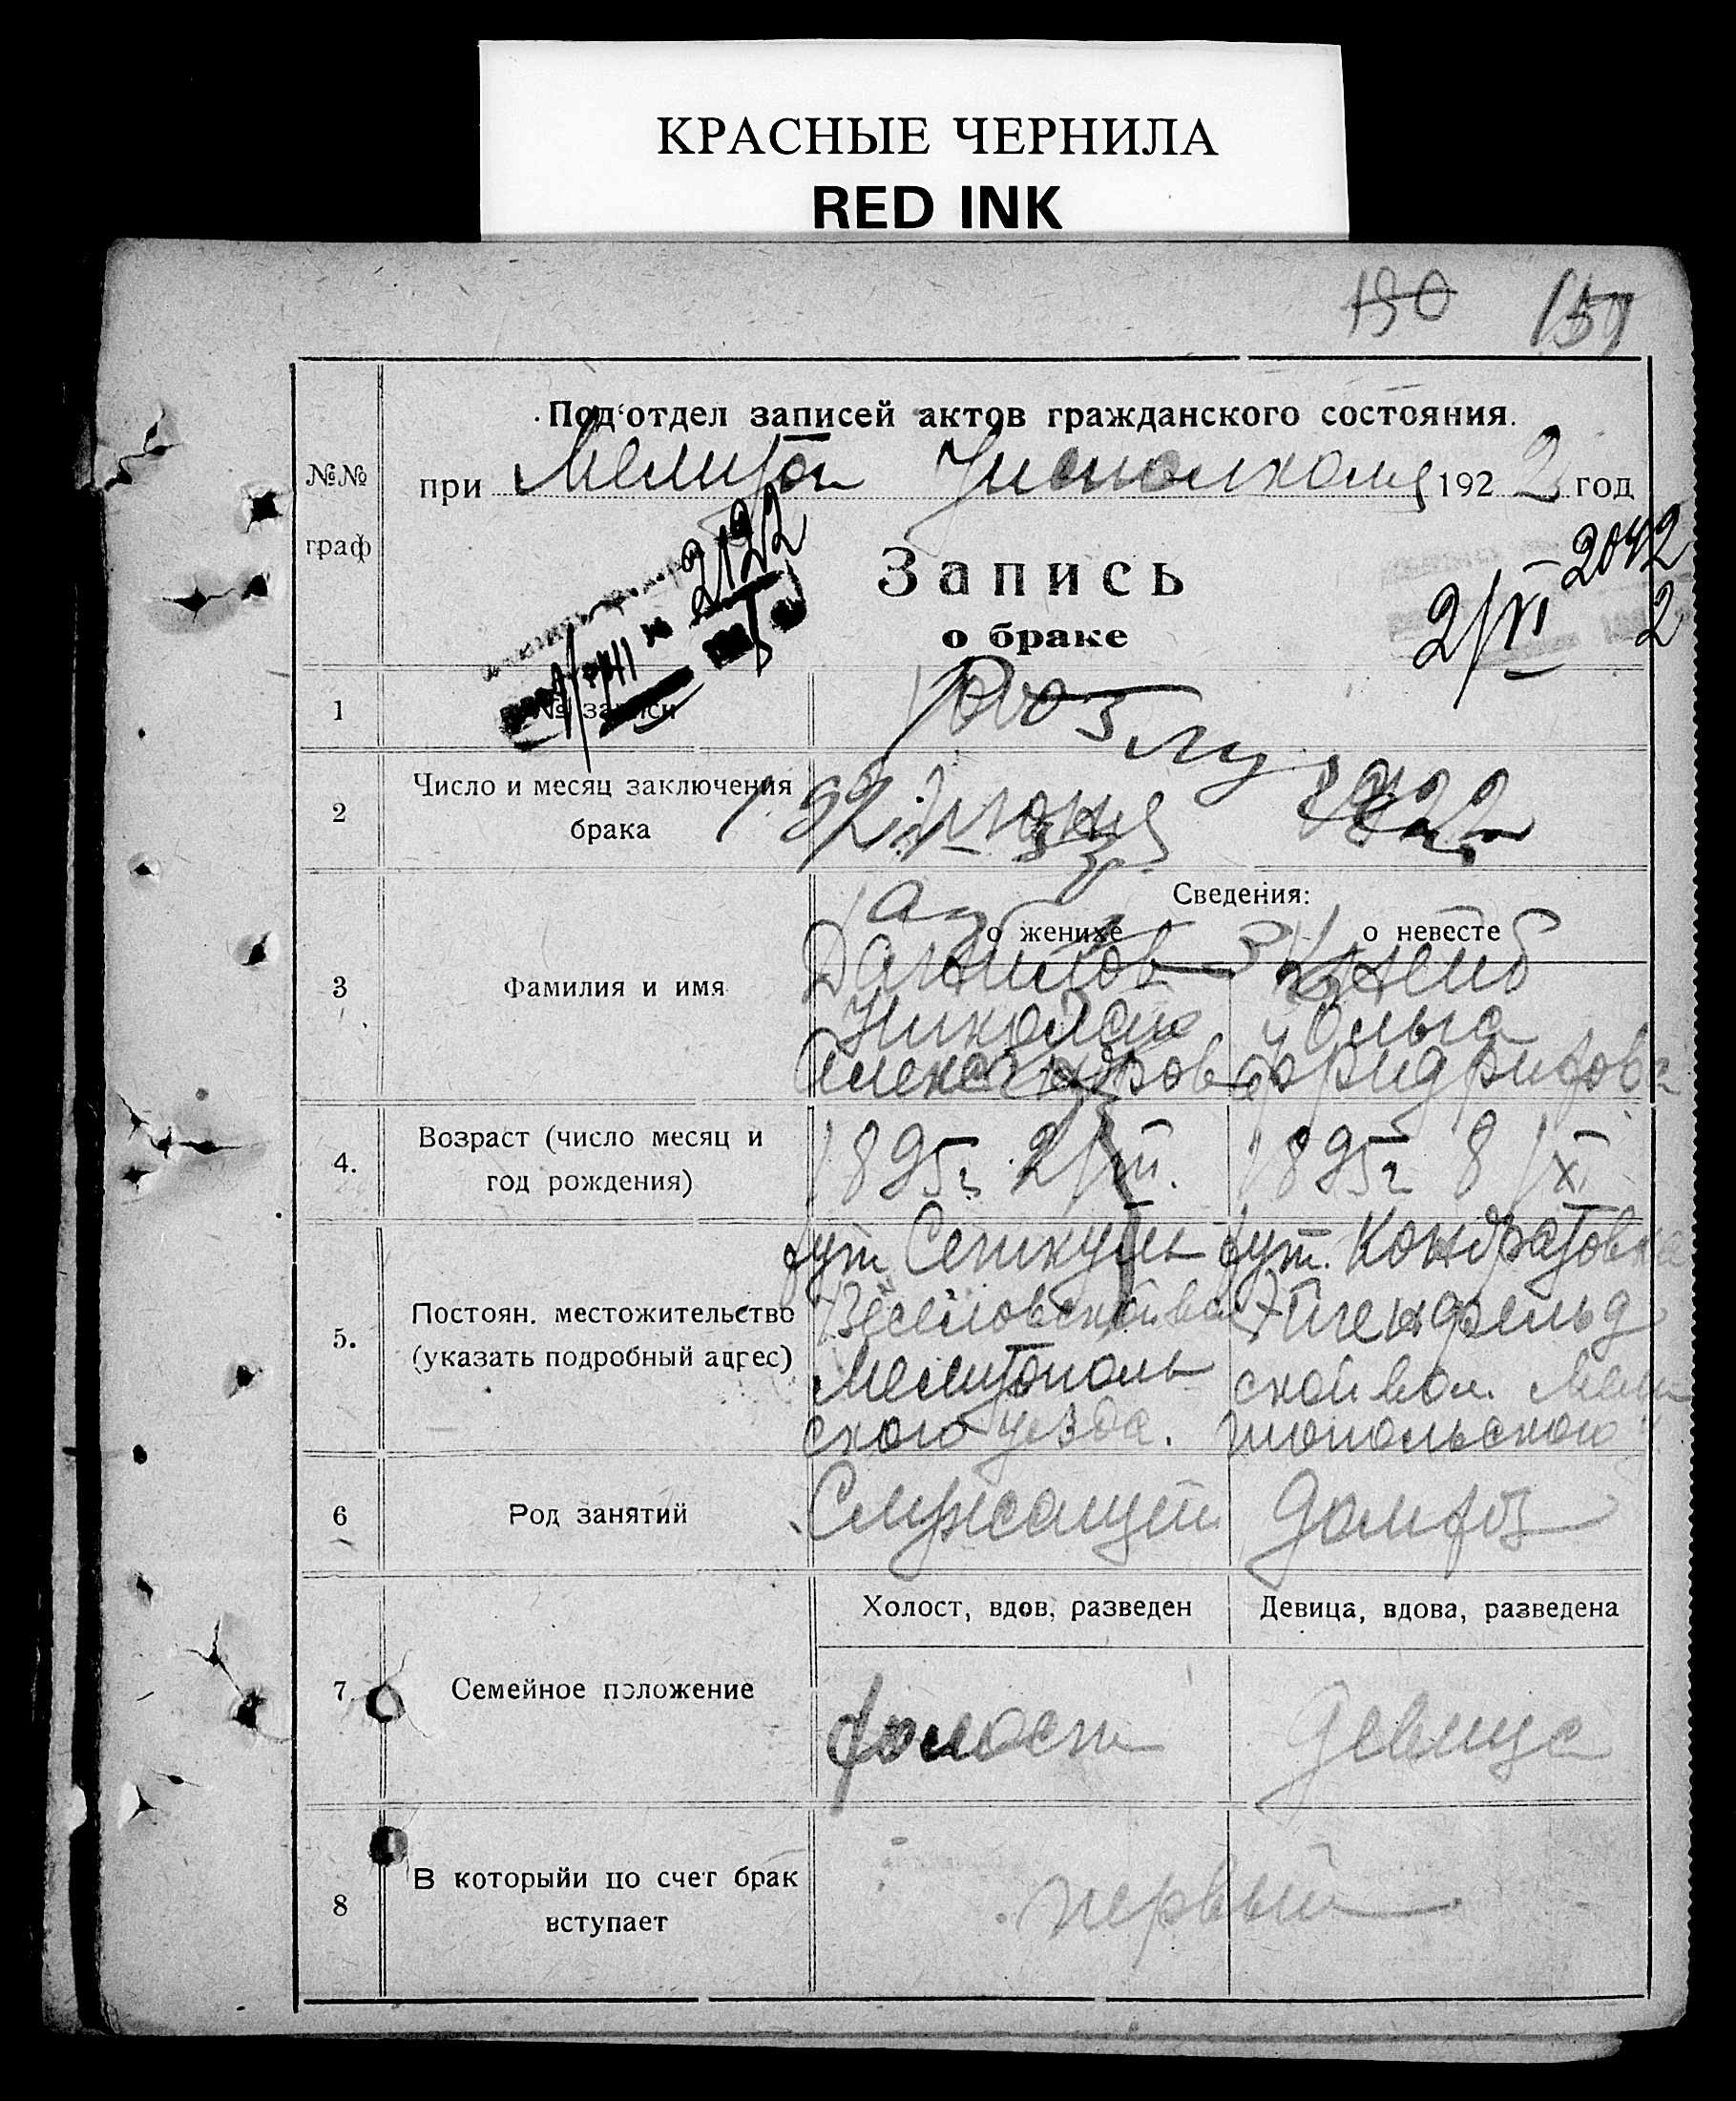 КРАСНЫЕ ЧЕРНИЛА
RED INK
190 151
Под'отдел записей актов гражданского состояния.
№№ граф
при Мелитоп Уисполкома 1922 год
Запись
о браке
2122
2/VI 2042
2
1 № записи
2 Число и месяц заключения брака
2 июня 1922
Сведения:
о женихе о невесте
3 Фамилия и имя
Данилов
Николай
Александров
Ольга
Фридрихова
4. Возраст (число месяц и год рождения)
1895г. 2/III. 1895г 8/XI
5. Постоян. местожительство (указать подробный адрес)
хут
Веселовской вол
Мелитополь
ского уезда.
хут. Кондратовка
Тигенфельд
ской вол. Мели
топольского
6 Род занятий
Служащий домхоз
Холост, вдов, разведен Девица, вдова, разведена
7 Семейное положение
холост девица
8 В которыйи по счет брак вступает
первый